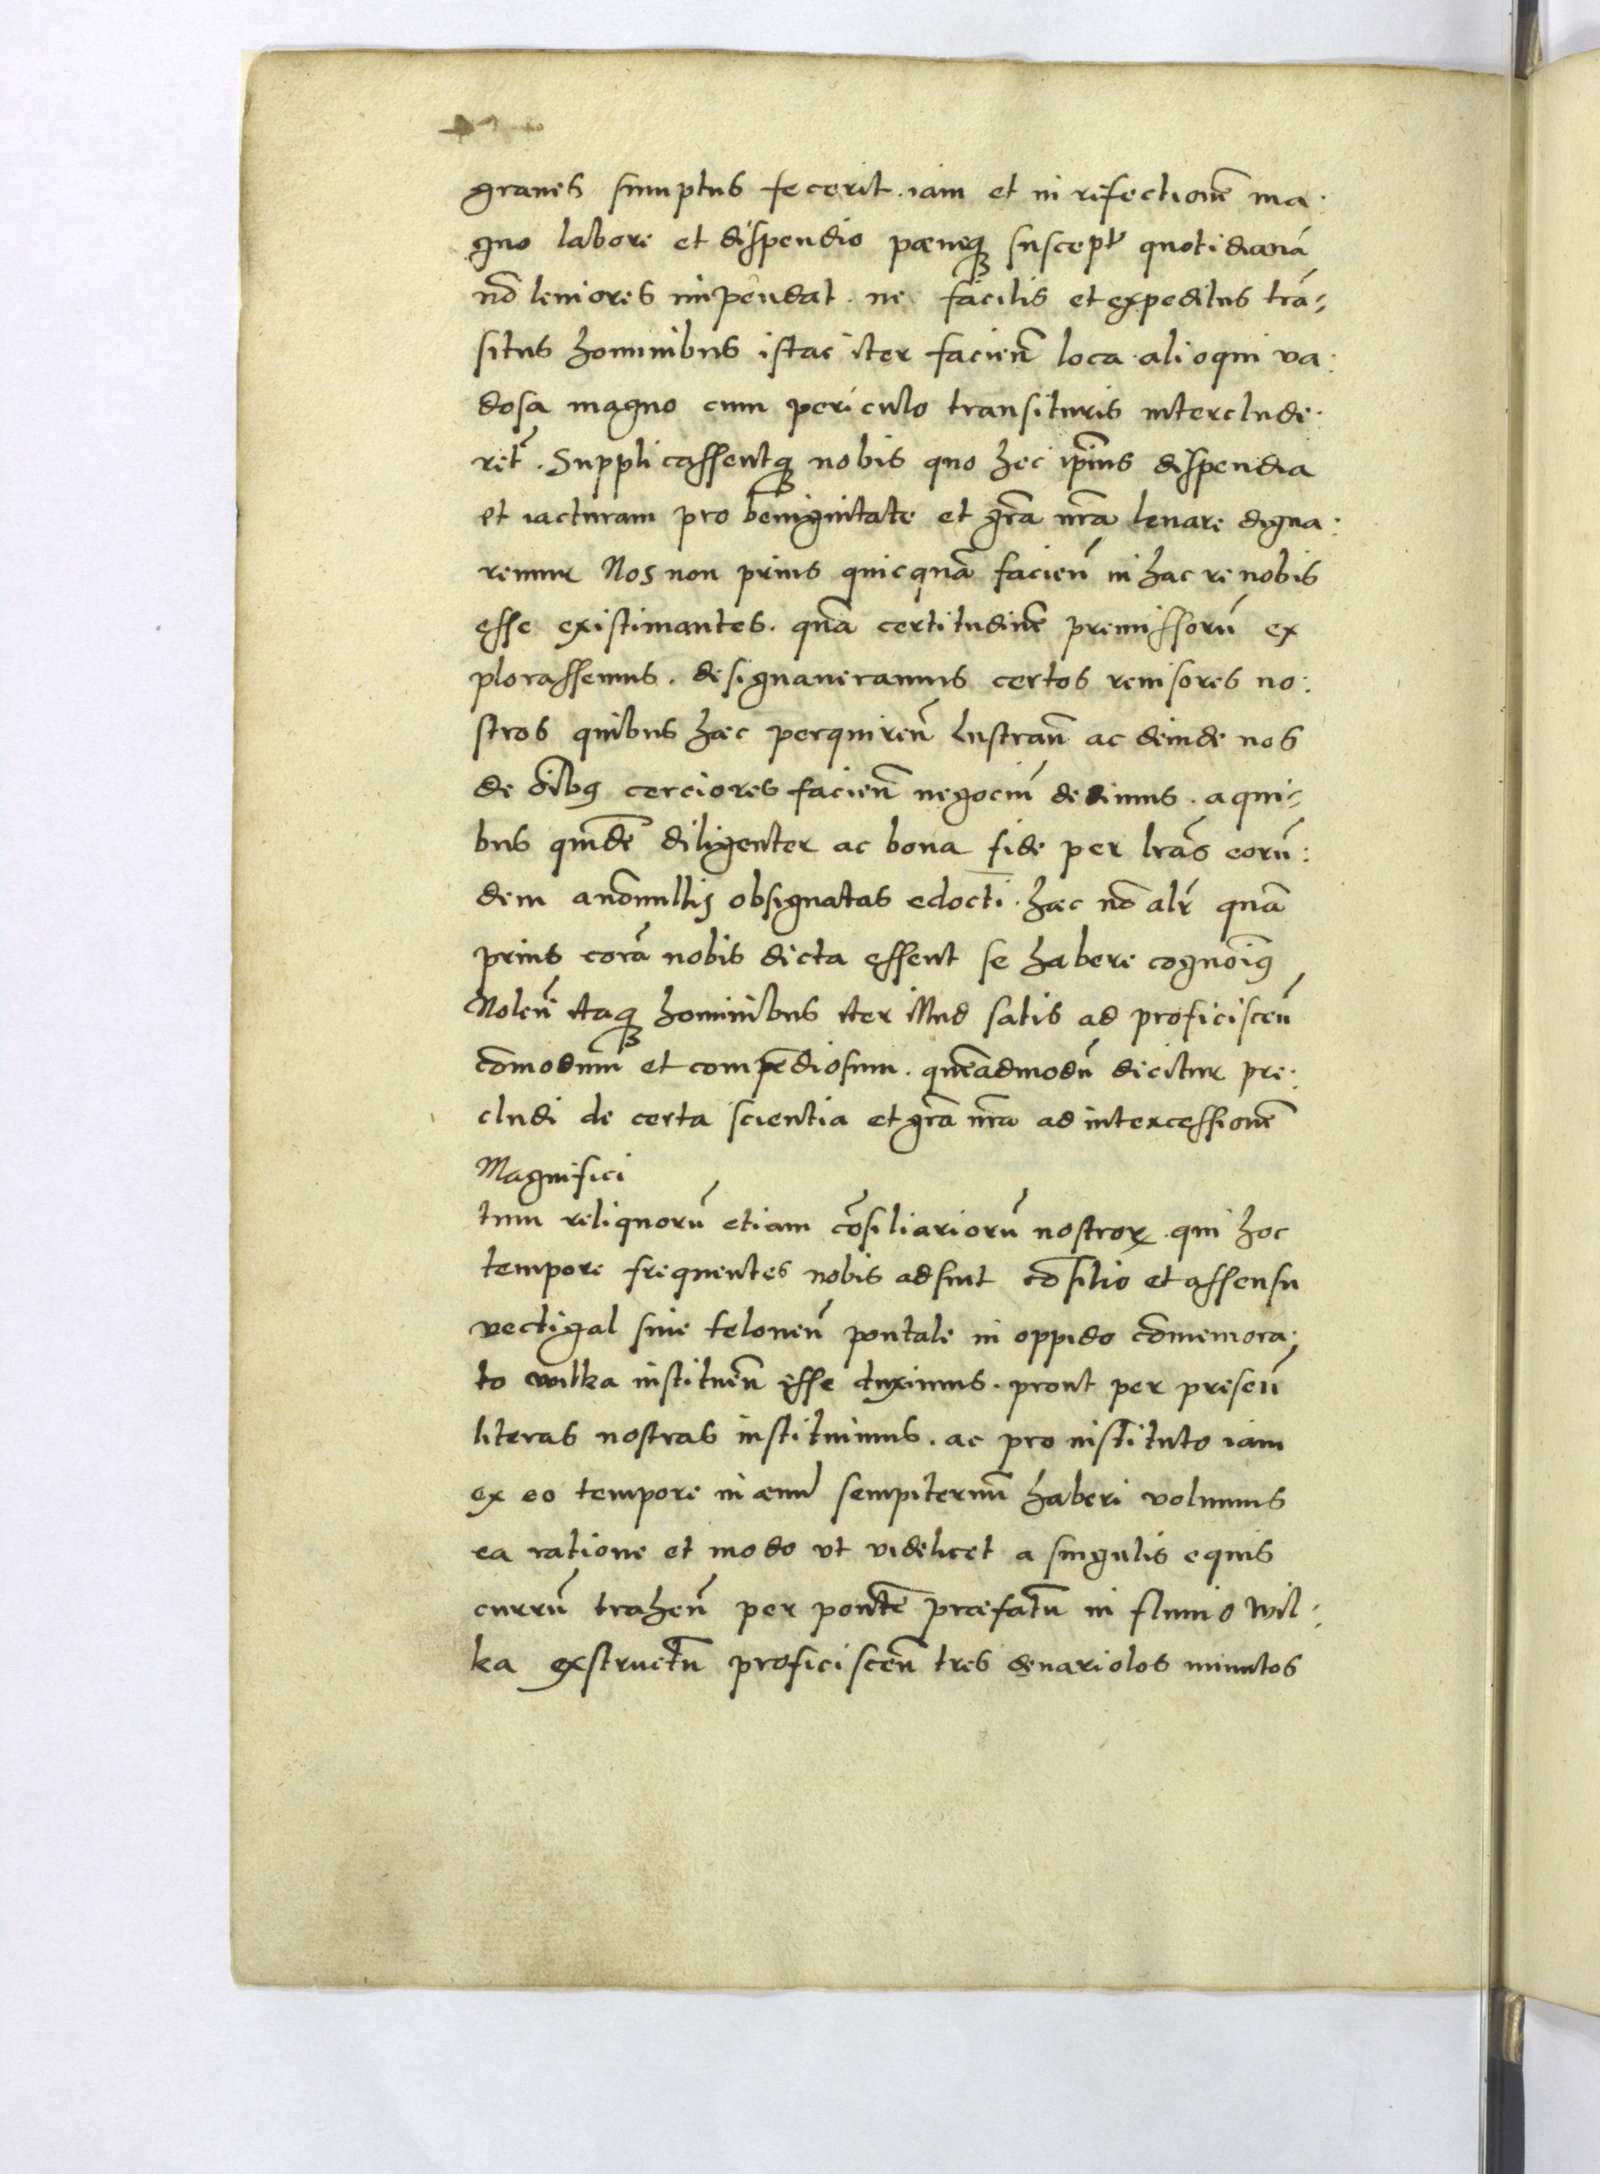 graues sumptus fecerit. iam et in refectionē ma:
gno labore et dispendio pœneq susceptā quotidianā
nō leuiores impendat. ne facilis et expeditus trā-
situs hominibus istac iter facien̄ loca alioqui va:
dosa magno cum periculo transituris interclude:
ret̄. Supplicassentq nobis quo hec ip̄ius dispendia
et iacturam pro benignitate et gr̄a nr̄a leuare digna:
remur Nos non prius quicquā facien̄ in hac re nobis
esse existimantes. quā certitudinē premissorū ex
plorassemus. designaueramus certos reuisores no:
stros quibus hæc perquiren̄ lustran̄ ac deinde nos
de oībꝰ certiores facien̄ negociū dedimus. a qui-
bus quidē diligenter ac bona fide per lr̄as eorū:
dem a nōnullis obsignatas edocti. hæc nō alr̄ quā
prius corā nobis dicta essent se habere cognouimꝰ
Nolen̄ itaq hominibus iter illud satis ad proficiscen̄
cōmodum et compēdiosum. quēadmodū dicitur pre:
cludi de certa scientia et gr̄a nr̄a ad intercessionē
Magnifici
tum reliquorū etiam cōsiliariorū nostroꝝ. qui hoc
tempore frequentes nobis adsunt cōsilio et assensu
vectigal siue teloneū pontale in oppido cōmemora:
to wilka instituen̄ esse duximus. prout per presen̄
literas nostras instituimus. ac pro instituto iam
ex eo tempore in æuū sempiternū haberi volumus
ea ratione et modo vt videlicet a singulis equis
currū trahen̄ per pontē præfatū in fluuio Wil:
ka exstructū proficiscen̄ tres denariolos minutos